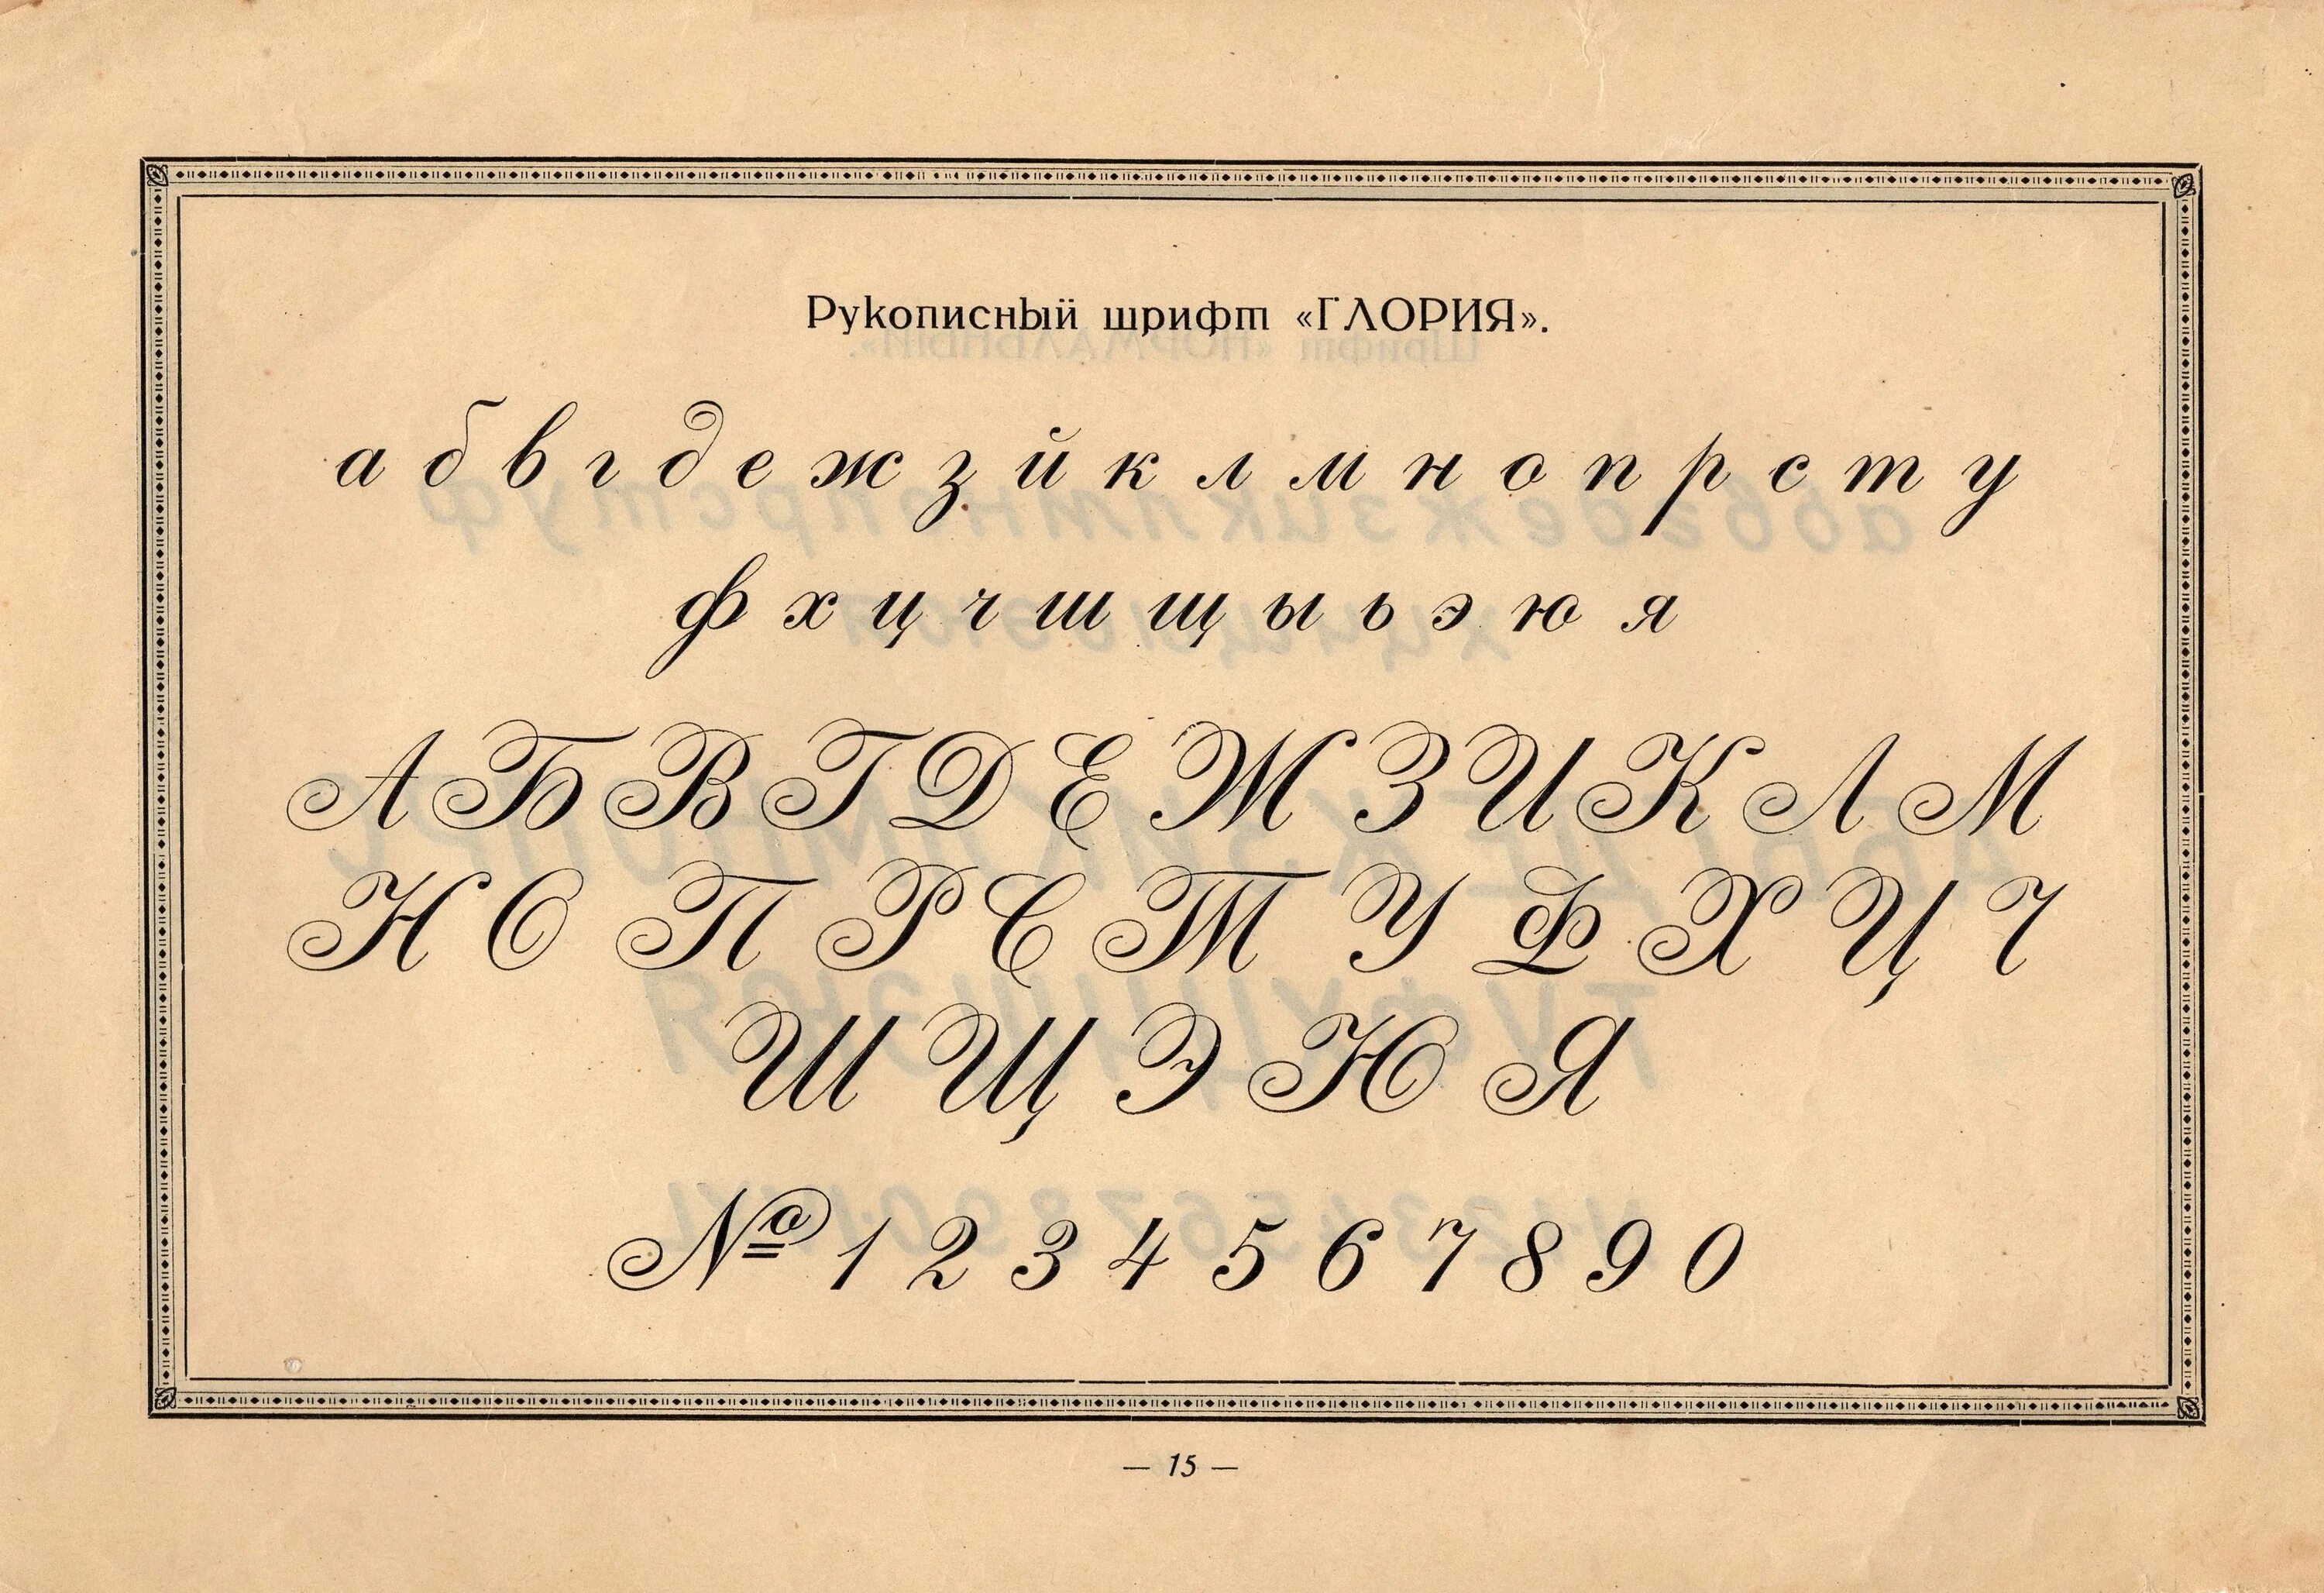 Рукописный шрифт «ГЛОРИЯ».
а б в г д е ж з й к л м н о п р с т у
ф х ц ч ш щ ы ь э ю я
А Б В Г Д Е Ж З И К Л М
Н О П Р С Т У Ф Х Ц Ч
Ш Щ Э Ю Я
№ 1 2 3 4 5 6 7 8 9 0
— 15 —